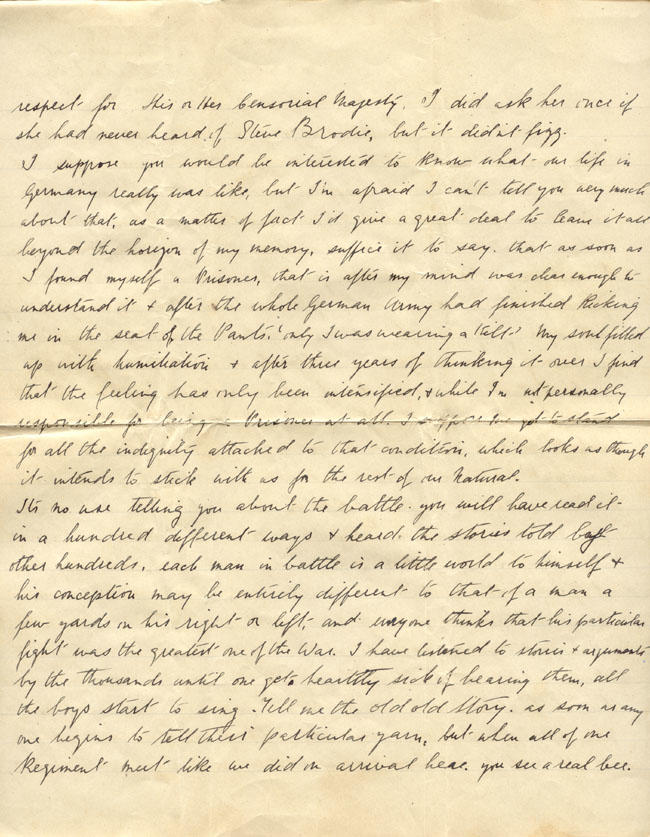 respect for His or Her Censorial Majesty. I did ask her once if
she had never heard of Steve Brodie, but it didn't fizz.
I suppose you would be interested to know what our life in
Germany really was like, but I'm afraid I can't tell you very much
about that, as a matter of fact I'd give a great deal to leave it all
beyond the horizon of my memory, suffice it to say. that as soon as
I found myself a Prisoner, that is after my mind was clear enough to
understand it & after the whole German Army had finished Kicking
me in the seat of the Pants. (only I was wearing a Kilt) My soul filled
up with humiliation & after three years of thinking it over I find
that the feeling has only been intensified, & while I'm not personally
responsible for being a Prisoner at all. I suppose I've got to stand
for all the indignity attached to that condition, which looks as though
it intends to stick with us for the rest of our Natural.
Its no use telling you about the battle. you will have read it
in a hundred different ways & heard. the stories told by
other hundreds. each man in battle is a little world to himself &
his conception may be entirely different to that of a man a
few yards on his right or left, and everyone thinks that his particular
fight was the greatest one of the War. I have listened to stories & arguments
by the thousands until one gets heartily sick of hearing them, all
the boys start to sing. Tell me the old old Story. as soon as any
one begins to tell their particular yarn, but when all of one
Regiment meet like we did on arrival here. you see a real bee.